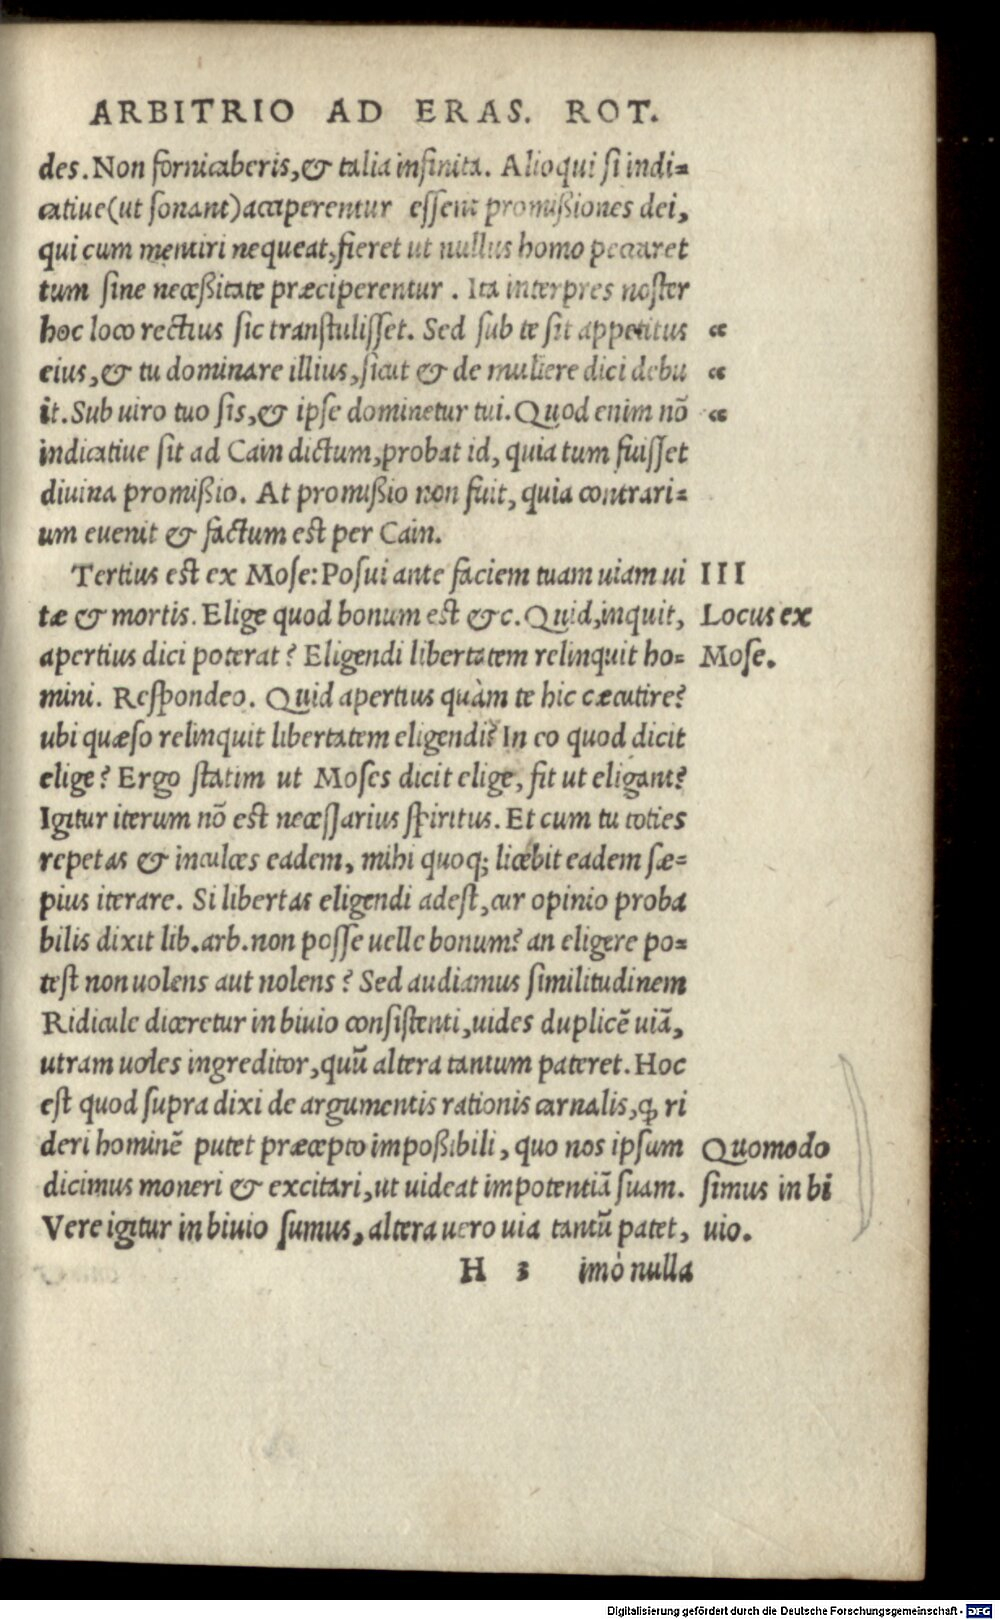 ARBITRIO AD ERAS. ROT.
des. Non fornicaberis, & talia infinita. Alioqui si indi=
catiue (ut sonant) acciperentur essent promißiones dei,
qui cum mentiri nequeat, fieret ut nullus homo peccaret
tum sine neceßitate præciperentur. Ita interpres noster
hoc loco rectius sic transtulisset. Sed sub te sit appetitus “
eius, & tu dominare illius, sicut & de muliere dici debu “
it. Sub uiro tuo sis, & ipse dominetur tui. Quod enim nō “
indicatiue sit ad Cain dictum, probat id, quia tum fuisset
diuina promißio. At promißio non fuit, quia contrari=
um euenit & factum est per Cain.
Tertius est ex Mose: Posui ante faciem tuam uiam ui III
tæ & mortis. Elige quod bonum est &c. Quid, inquit, Locus ex
apertius dici poterat? Eligendi libertatem relinquit ho= Mose.
mini. Respondeo. Quid apertius quàm te hic cæcutire?
ubi quæso relinquit libertatem eligendi? In eo quod dicit
elige? Ergo statim ut Moses dicit elige, fit ut eligant?
Igitur iterum nō est necessarius spiritus. Et cum tu toties
repetas & inculces eadem, mihi quoq; licebit eadem sæ=
pius iterare. Si libertas eligendi adest, cur opinio proba
bilis dixit lib. arb. non posse uelle bonum? an eligere po=
test non uolens aut nolens? Sed audiamus similitudinem
Ridicule diceretur in biuio consistenti, uides duplicē uiā,
utram uoles ingreditor, quū altera tantum pateret. Hoc
est quod supra dixi de argumentis rationis carnalis, ꝙ ri
deri hominē putet præcepto impoßibili, quo nos ipsum Quomodo
dicimus moneri & excitari, ut uideat impotentiā suam. simus in bi
Vere igitur in biuio sumus, altera uero uia tantū patet, uio.
H 3 imò nulla
Digitalisierung gefördert durch die Deutsche Forschungsgemeinschaft - DFG